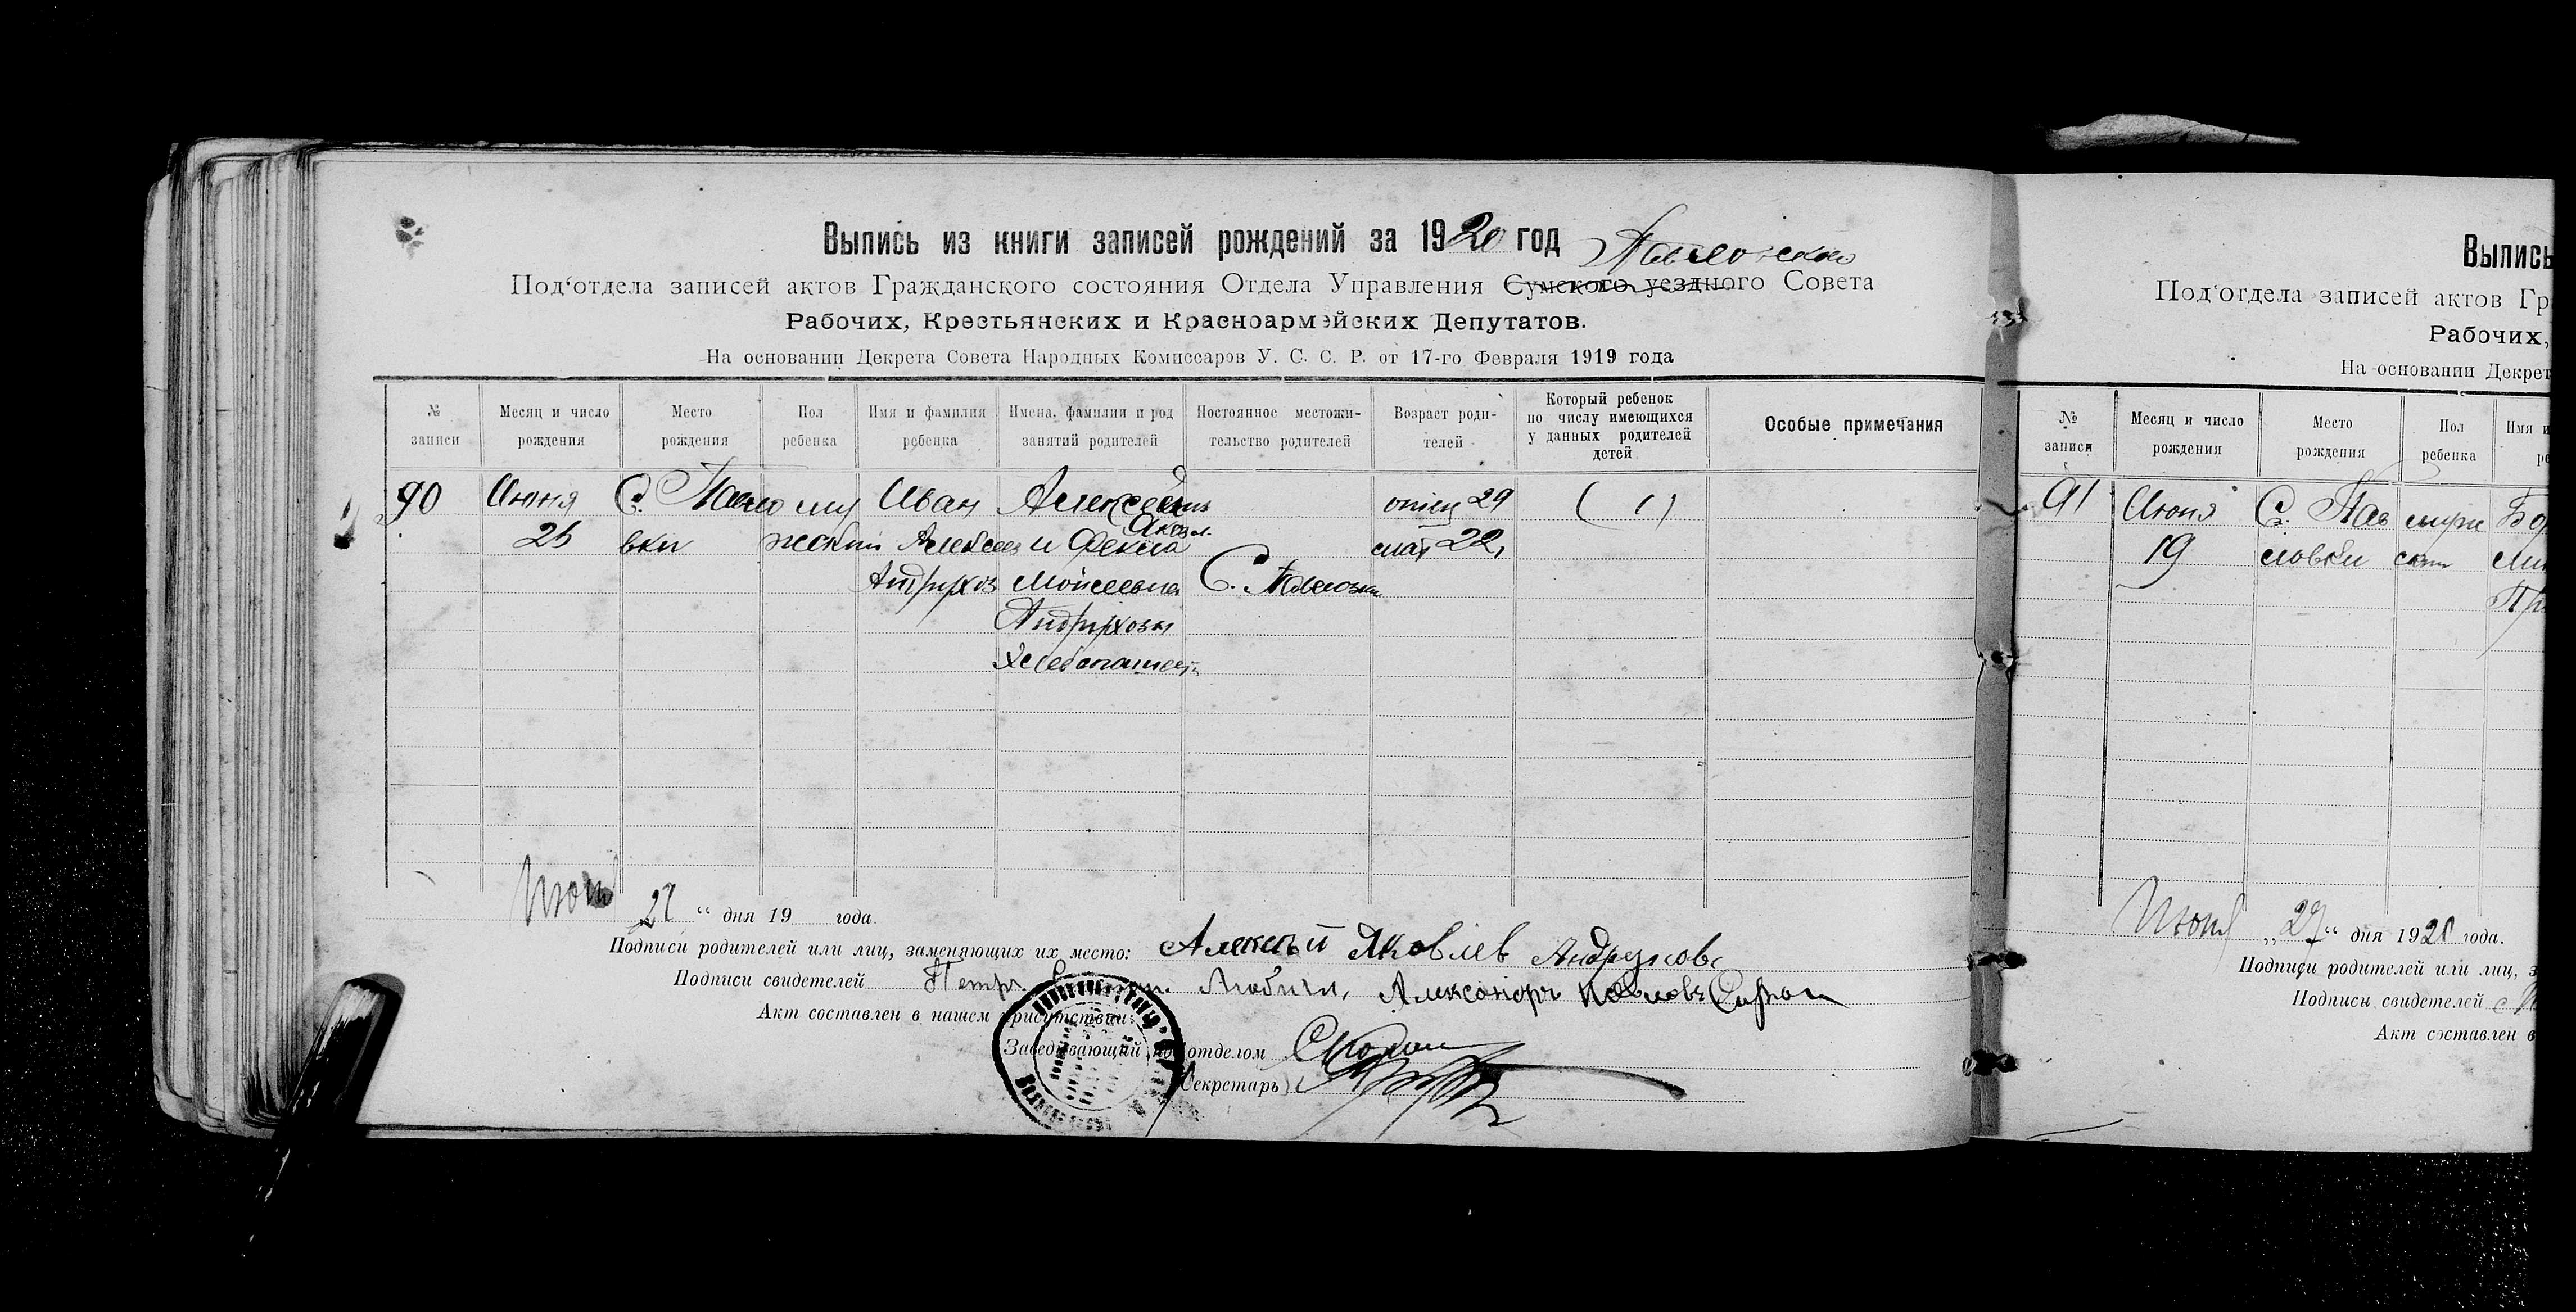 Выпись из книги записей рождений за 1920 год
Под‘отдела записей актов Гражданского состояния Отдела Управления Сумского уездного Совета
Рабочих, Крестьянских и Красноармейских Депутатов.
На основании Декрета Совета Народных Комиссаров У. С. С. Р. от 17-го Февраля 1919 года
№ записи
Месяц и число рождения
Место рождения
Пол ребенка
Имя и фамилия ребенка
Имена, фамилии и род занятий родителей
Постоянное местожи-
тельство родителей
Возраст роди-
телей
Который ребенок
по числу имеющихся
у данных родителей
детей
Особые примечания
90 Июня С. Павло му Иван Алексей отец 29 (1)
вки жской Алексеев и Фекла мат 22
Андрухов Моисеевна С. Павловки
Андруховы
Хлебопашест
27 “ дня 19 года.
Подписи родителей или лиц, заменяющих их место: Алексъй Яковлев Андрухов
Подписи свидетелей Петръ Александръ Павловъ
Акт составлен в нашем присутствии:
Заведывающий под‘отделом
Секретарь
Выпись
Под‘отдела записей актов Гр
Рабочих,
На основании Декрет
№ записи
Месяц и число рождения
Место рождения
Пол ребенка
Имя и
91 Июня С. Пав мужс
19 ловки
„27“ дня 1920 года.
Подписи родителей или лиц, з
Подписи свидетелей
Акт составлен в